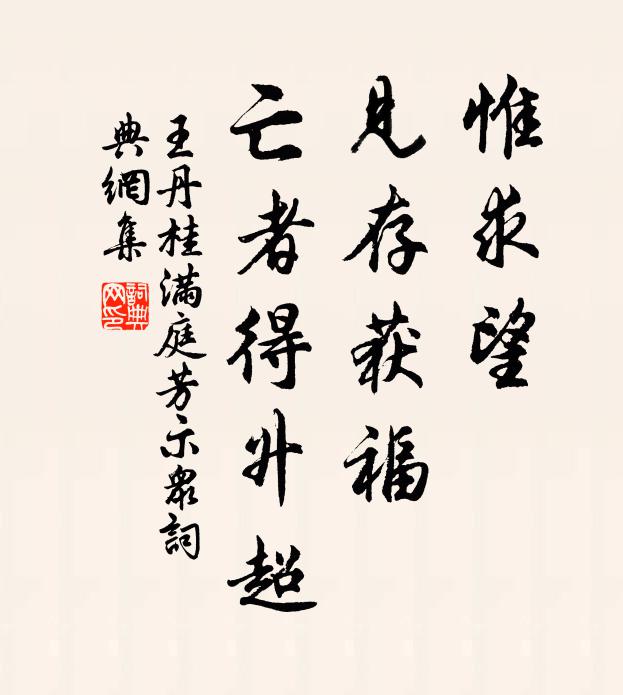 惟求望
見存获福
亡者得升超
王丹桂滿庭芳示眾詞
典網集
詞典網印